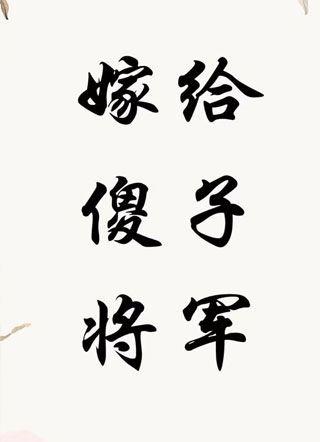 嫁给
傻子
将军